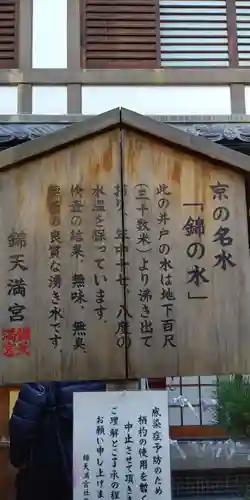 京の名水
「錦の水」
此の井戸の水は地下百尺
(三十数米)より沸き出て
おり、年中十七、八度の
水温を保っています。
検査の結果、無味、無臭
無菌の良質な湧き水です。
錦天満宮
錦天
満宮
感染症予防の為、
柄杓の使用を暫
中止させて頂き
ご理解とご了承の程
お願い申し上げま
錦天満宮社